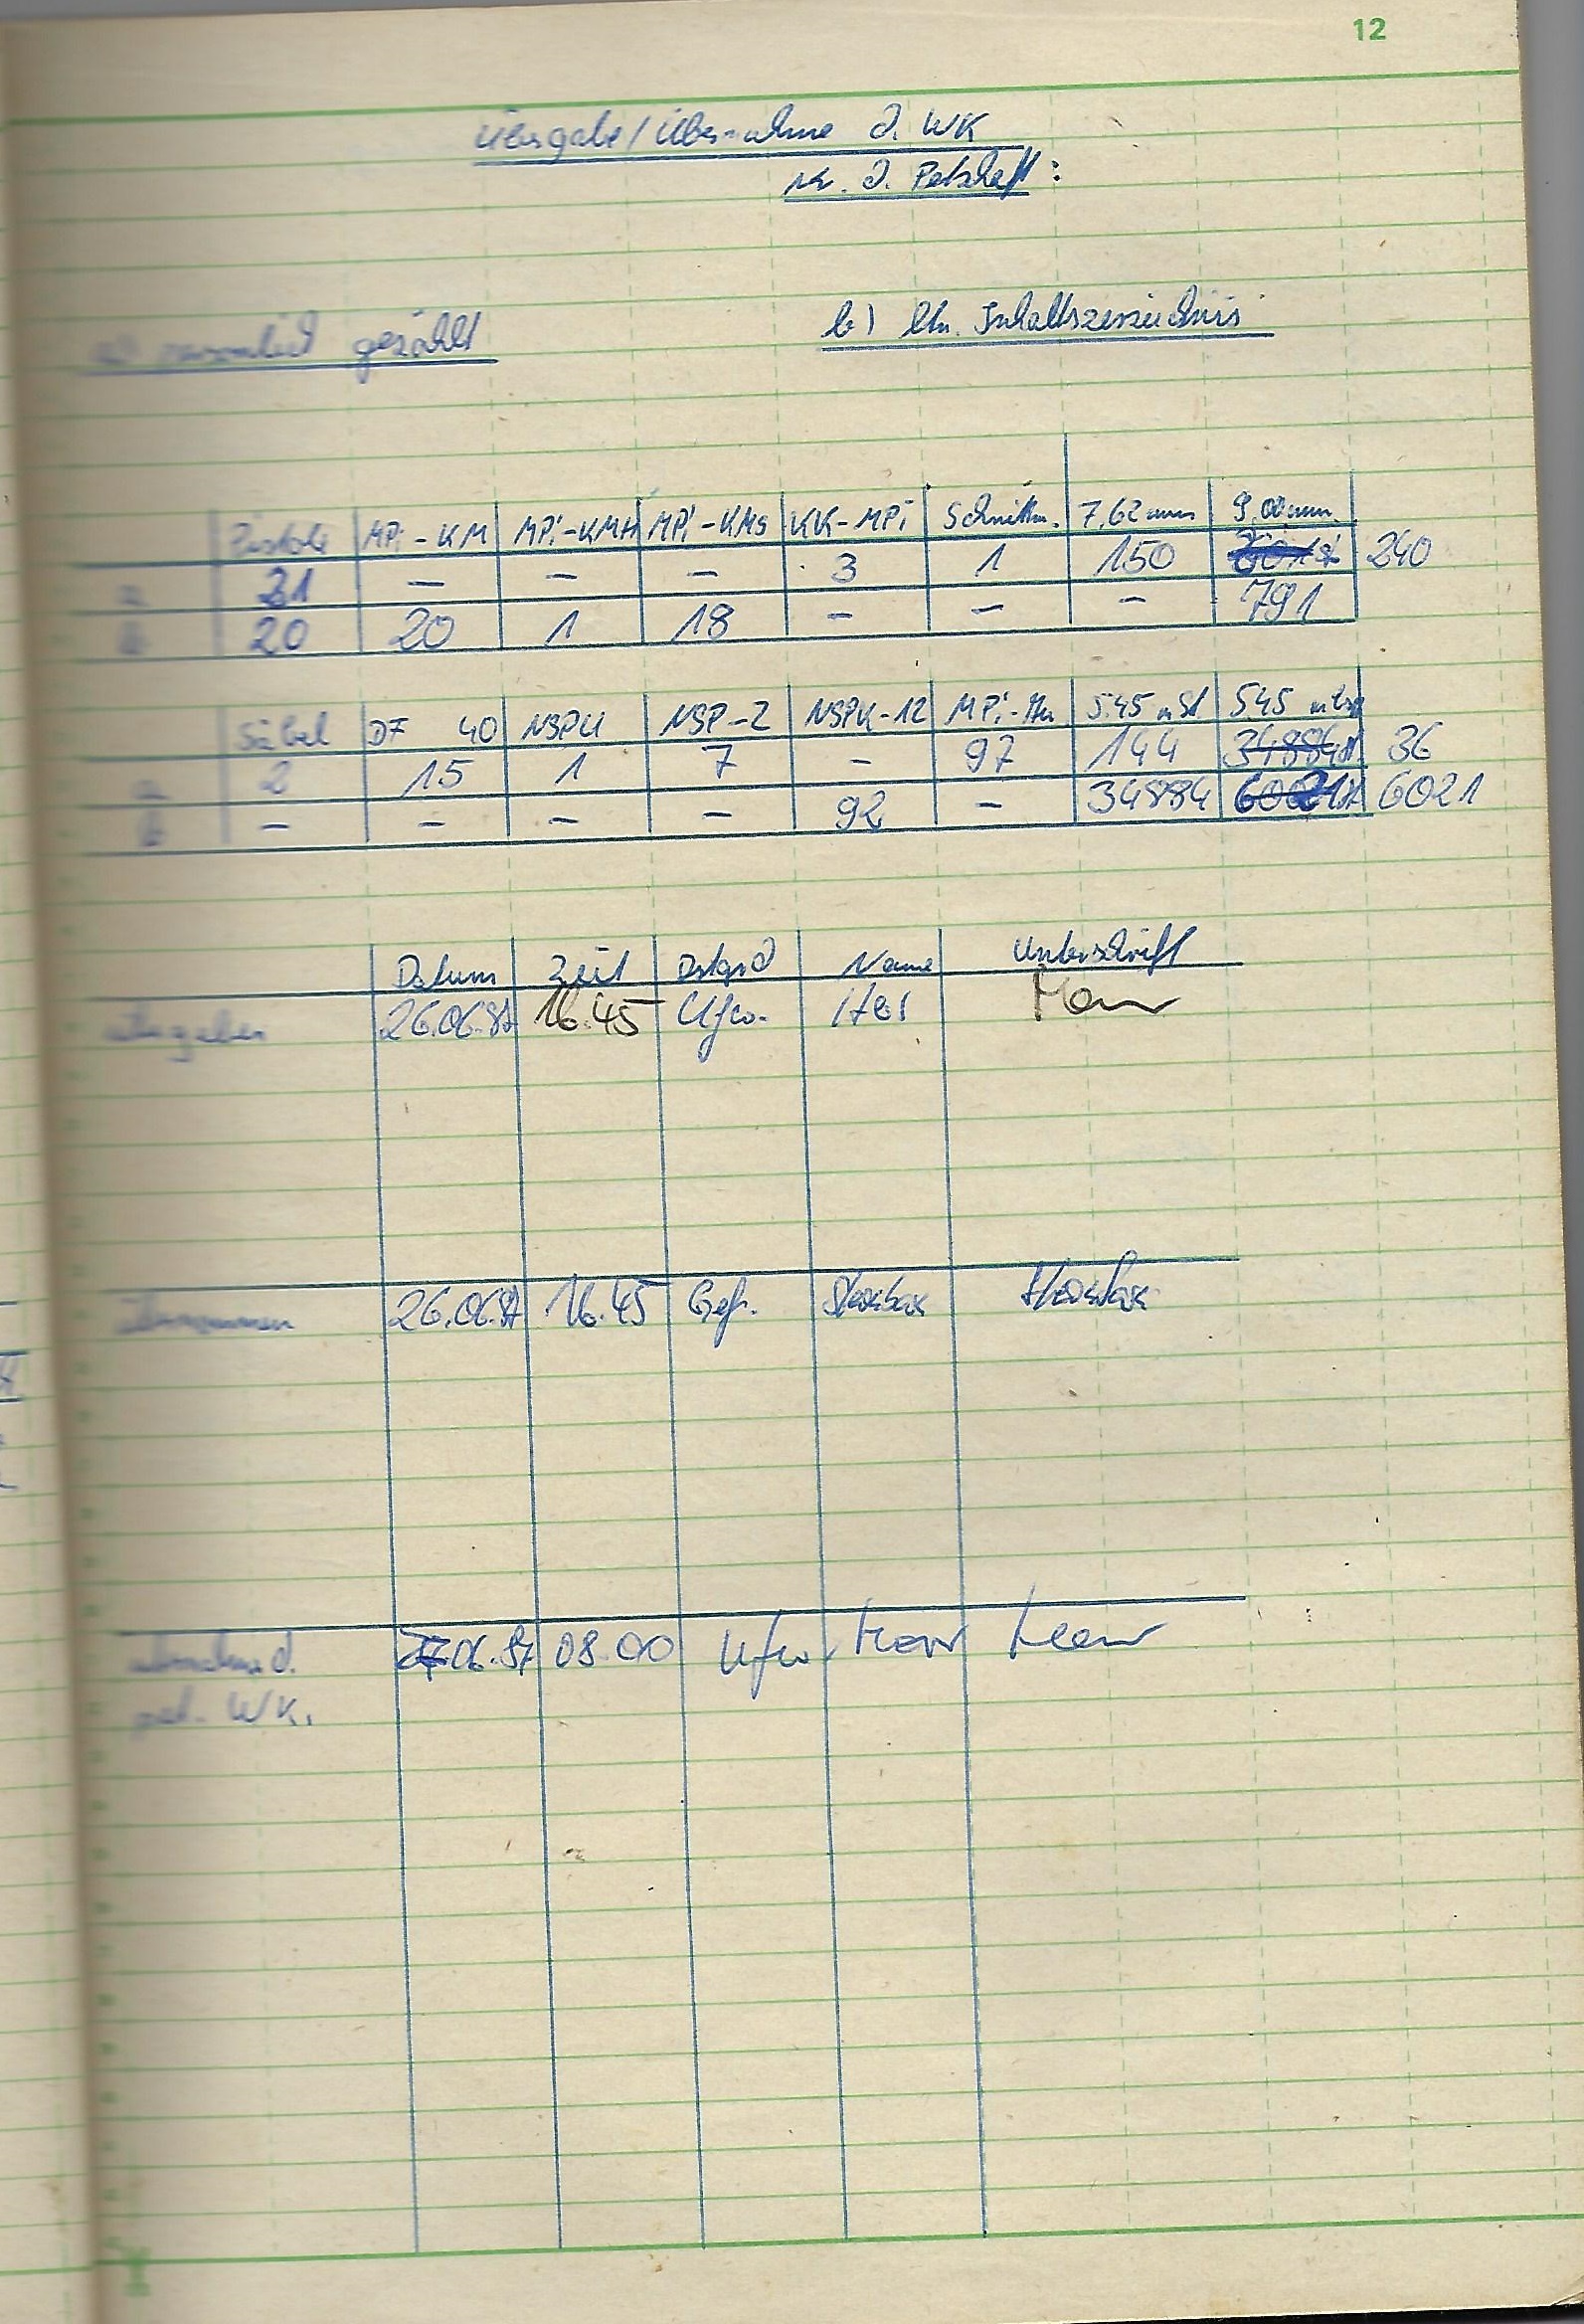 12
Übergabe/Übernahme d. WK
Nr. d. Petschaft:
a) persönlich gezählt
b) lt. Inhaltsverzeichnis
Pistole MPi-KM MPi-KMH MPi-KMS KK-MPi Schnittm. 7,62 mm 9,00 mm
a 21 — — — 3 1 150 240
b 20 20 1 18 — — — 791
Säbel DF 40 NSPU NSP-2 NSPU-12 MPi- 5.45 mSt 5.45
a 2 15 1 7 — 97 144 34884 36
b — — — — 92 — 34884 6021 6021
Datum Zeit Dstgrd Name Unterschrift
übergeben 26.06.87 16.45 Ufw.
Übernommen 26.06.87 16.45 Gefr.
27.06.87 08.00 Ufw.
WK.